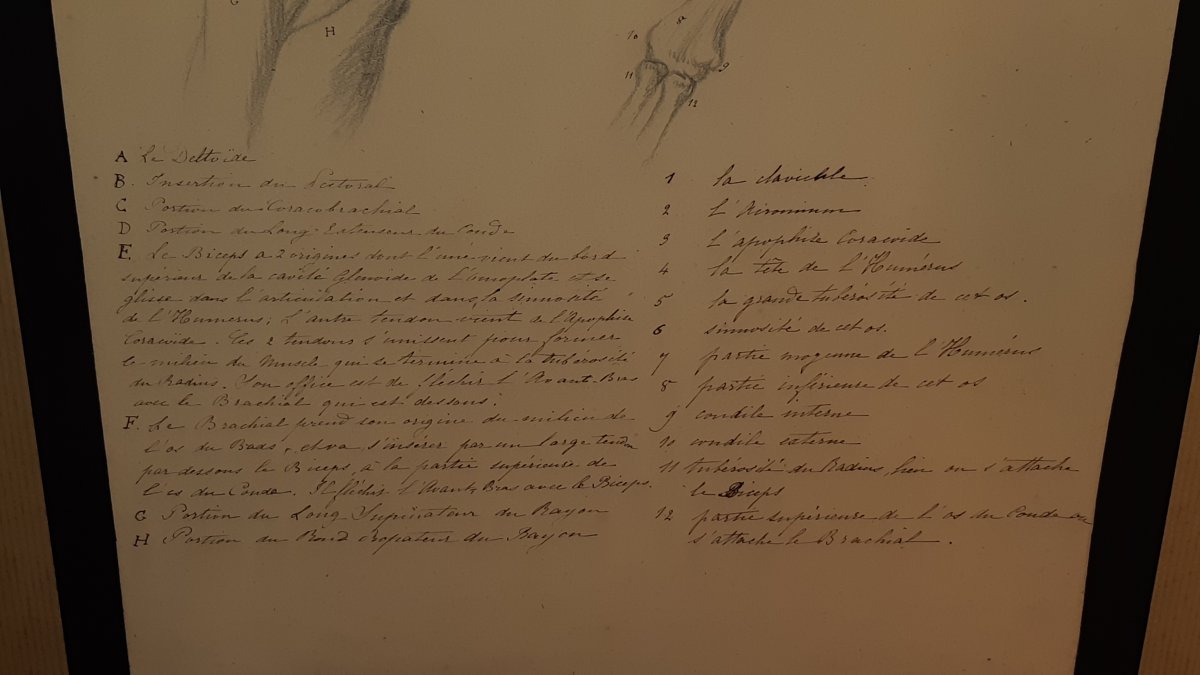 G
H
8
10
11
9
12
A Le Deltoïde
B. Insertion du Pectoral
C Portion du Coracobrachial
D Portion du Long Extenseur du Coude
E. Le Biceps a 2 origines dont l'une vient du bord
supérieur de la cavité Glenoïde de l'omoplate et se
glisse dans l'articulation et dans la sinuosité
de l'Humérus; L'autre tendon vient de l'Apophise
Coracoïde. Ces 2 tendons s'unissent pour former
le milieu du Muscle qui se termine à la tubérosité
du Radius. Son office est de fléchir l'Avant-Bras
avec le Brachial qui est dessous.
F. Le Brachial prend son origine du milieu de
l'os du Bras, et va s'insérer par un large tendon
par dessous le Biceps, à la partie supérieure de
l'os du Coude. Il fléchit l'Avant-Bras avec le Biceps.
G Portion du Long Supinateur du Rayon
H Portion du Rond du Rayon
1 la clavicule
2 L'
3 L'apophise Coracoïde
4 la tête de l'Humérus
5 la grande tubérosité de cet os.
6 sinuosité de cet os.
7 partie moyenne de l'Humérus
8 partie inférieure de cet os
9 condile interne
10 condile externe
11 tubérosité du Radius, lieu ou s'attache
le Biceps
12 partie supérieure de l'os du Coude ou
s'attache le Brachial.